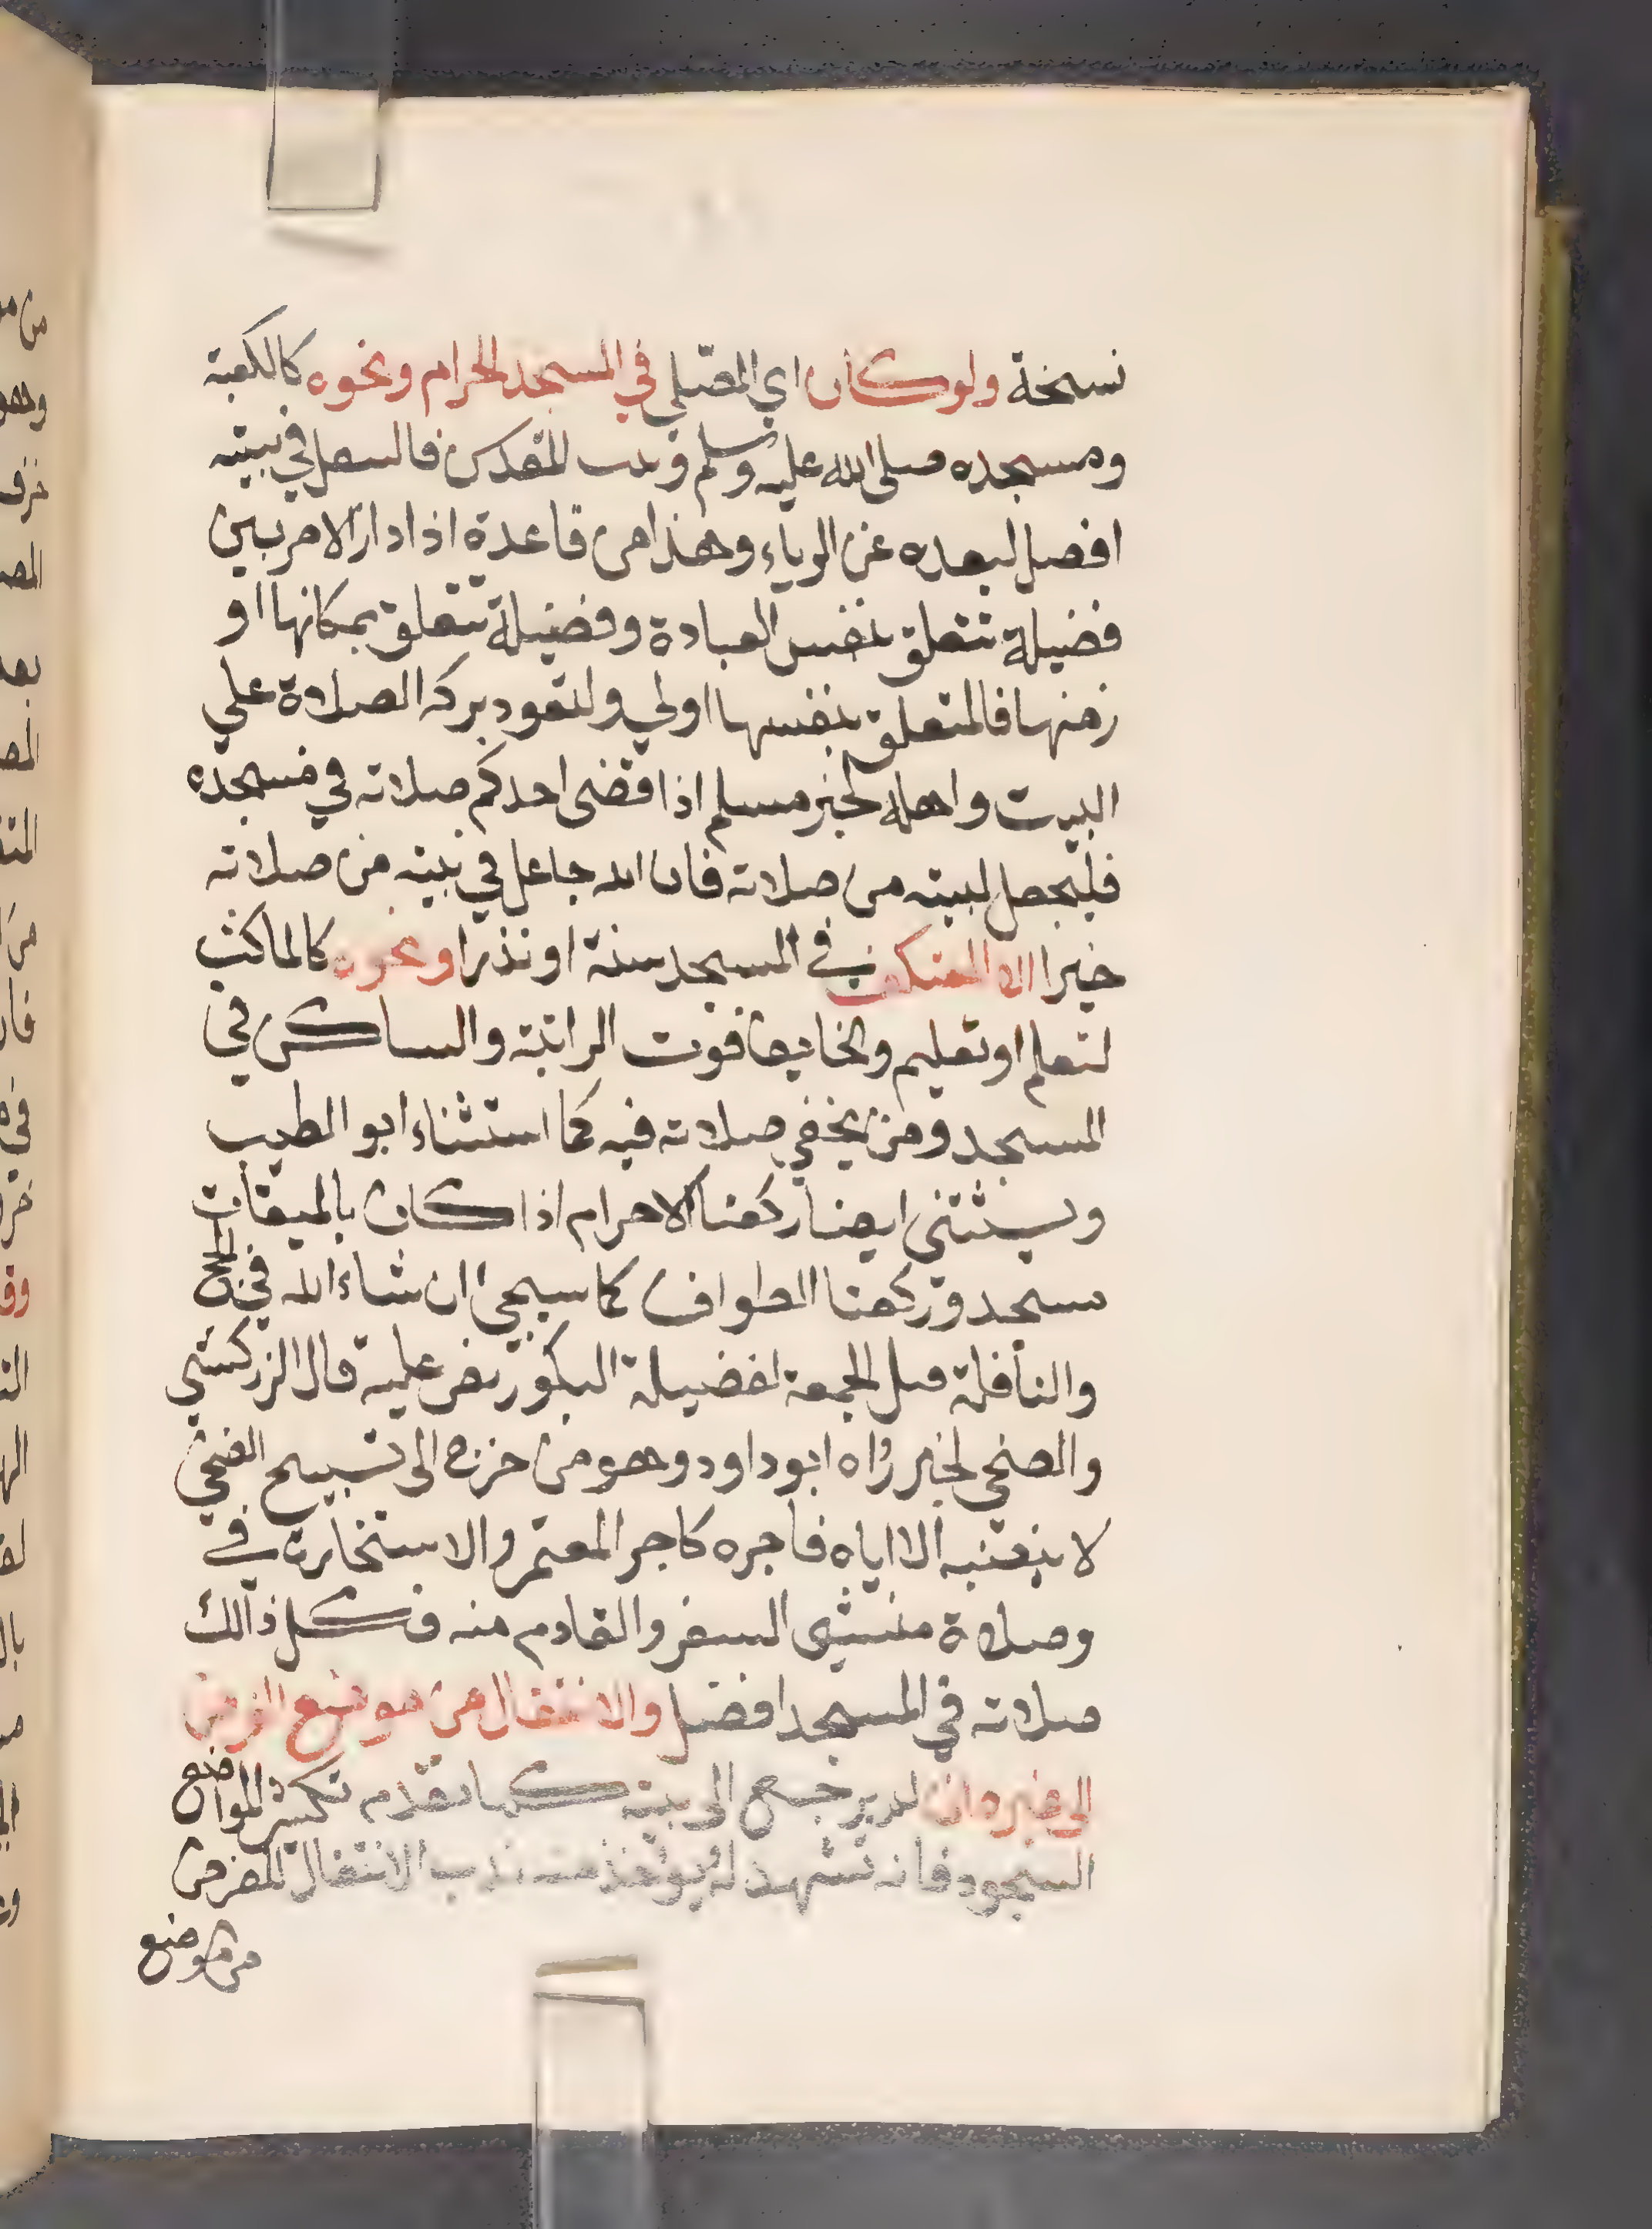 نسخة ولو كان اي المصلي في المسجد الحرام ونحوه كالكعبة
ومسجده صلى الله عليه وسلم وبيت المقدس فالنفل في بيته
افضل لبعده عن الرياء وهذا من قاعدة اذا دار الامر بين
فضيلة تتعلق بنفس العبادة وفضيلة تتعلق بمكانها او
زمنها فالمتعلق بنفسها اولي ولتعود بركة الصلاة علي
البيت واهله لخبر مسلم اذا قضى احدكم صلاته في مسجده
فليجعل لبيته من صلاته فان الله جاعل في بيته من صلاته
خيرا الا المعتكف في المسجد سنة او نذرا او نحوه كالماكث
لتعلم او تعليم والخايف فوت الراتبة والساكن في
المسجد ومن يخفي صلاته فيه كما استثناء ابو الطيب
ويستثني ايضا ركعتا الاحرام اذا كان بالميقات
مسجد وركعتا الطواف كما سيجي ان شاء الله في الحج
والنافلة قبل الجمعة لفضيلة البكور نص عليه قال الزركشي
والضحي لخبر رواه ابو داود وهو من خرج الى تسبيح الضحي
لا ينصبه الا اياه فاجره كاجر المعتمر والاستخارة في
وصلاة منشئ السفر والقادم منه فكل ذالك
صلاته في المسجد افضل والانتقال من موضع الفرض
الى غيره ان لم يرجع الى بيته كما تقدم تكثير المواضع
السجود فانه تشهد له ويؤخذ منه ندب الانتقال للفرض
من موضع